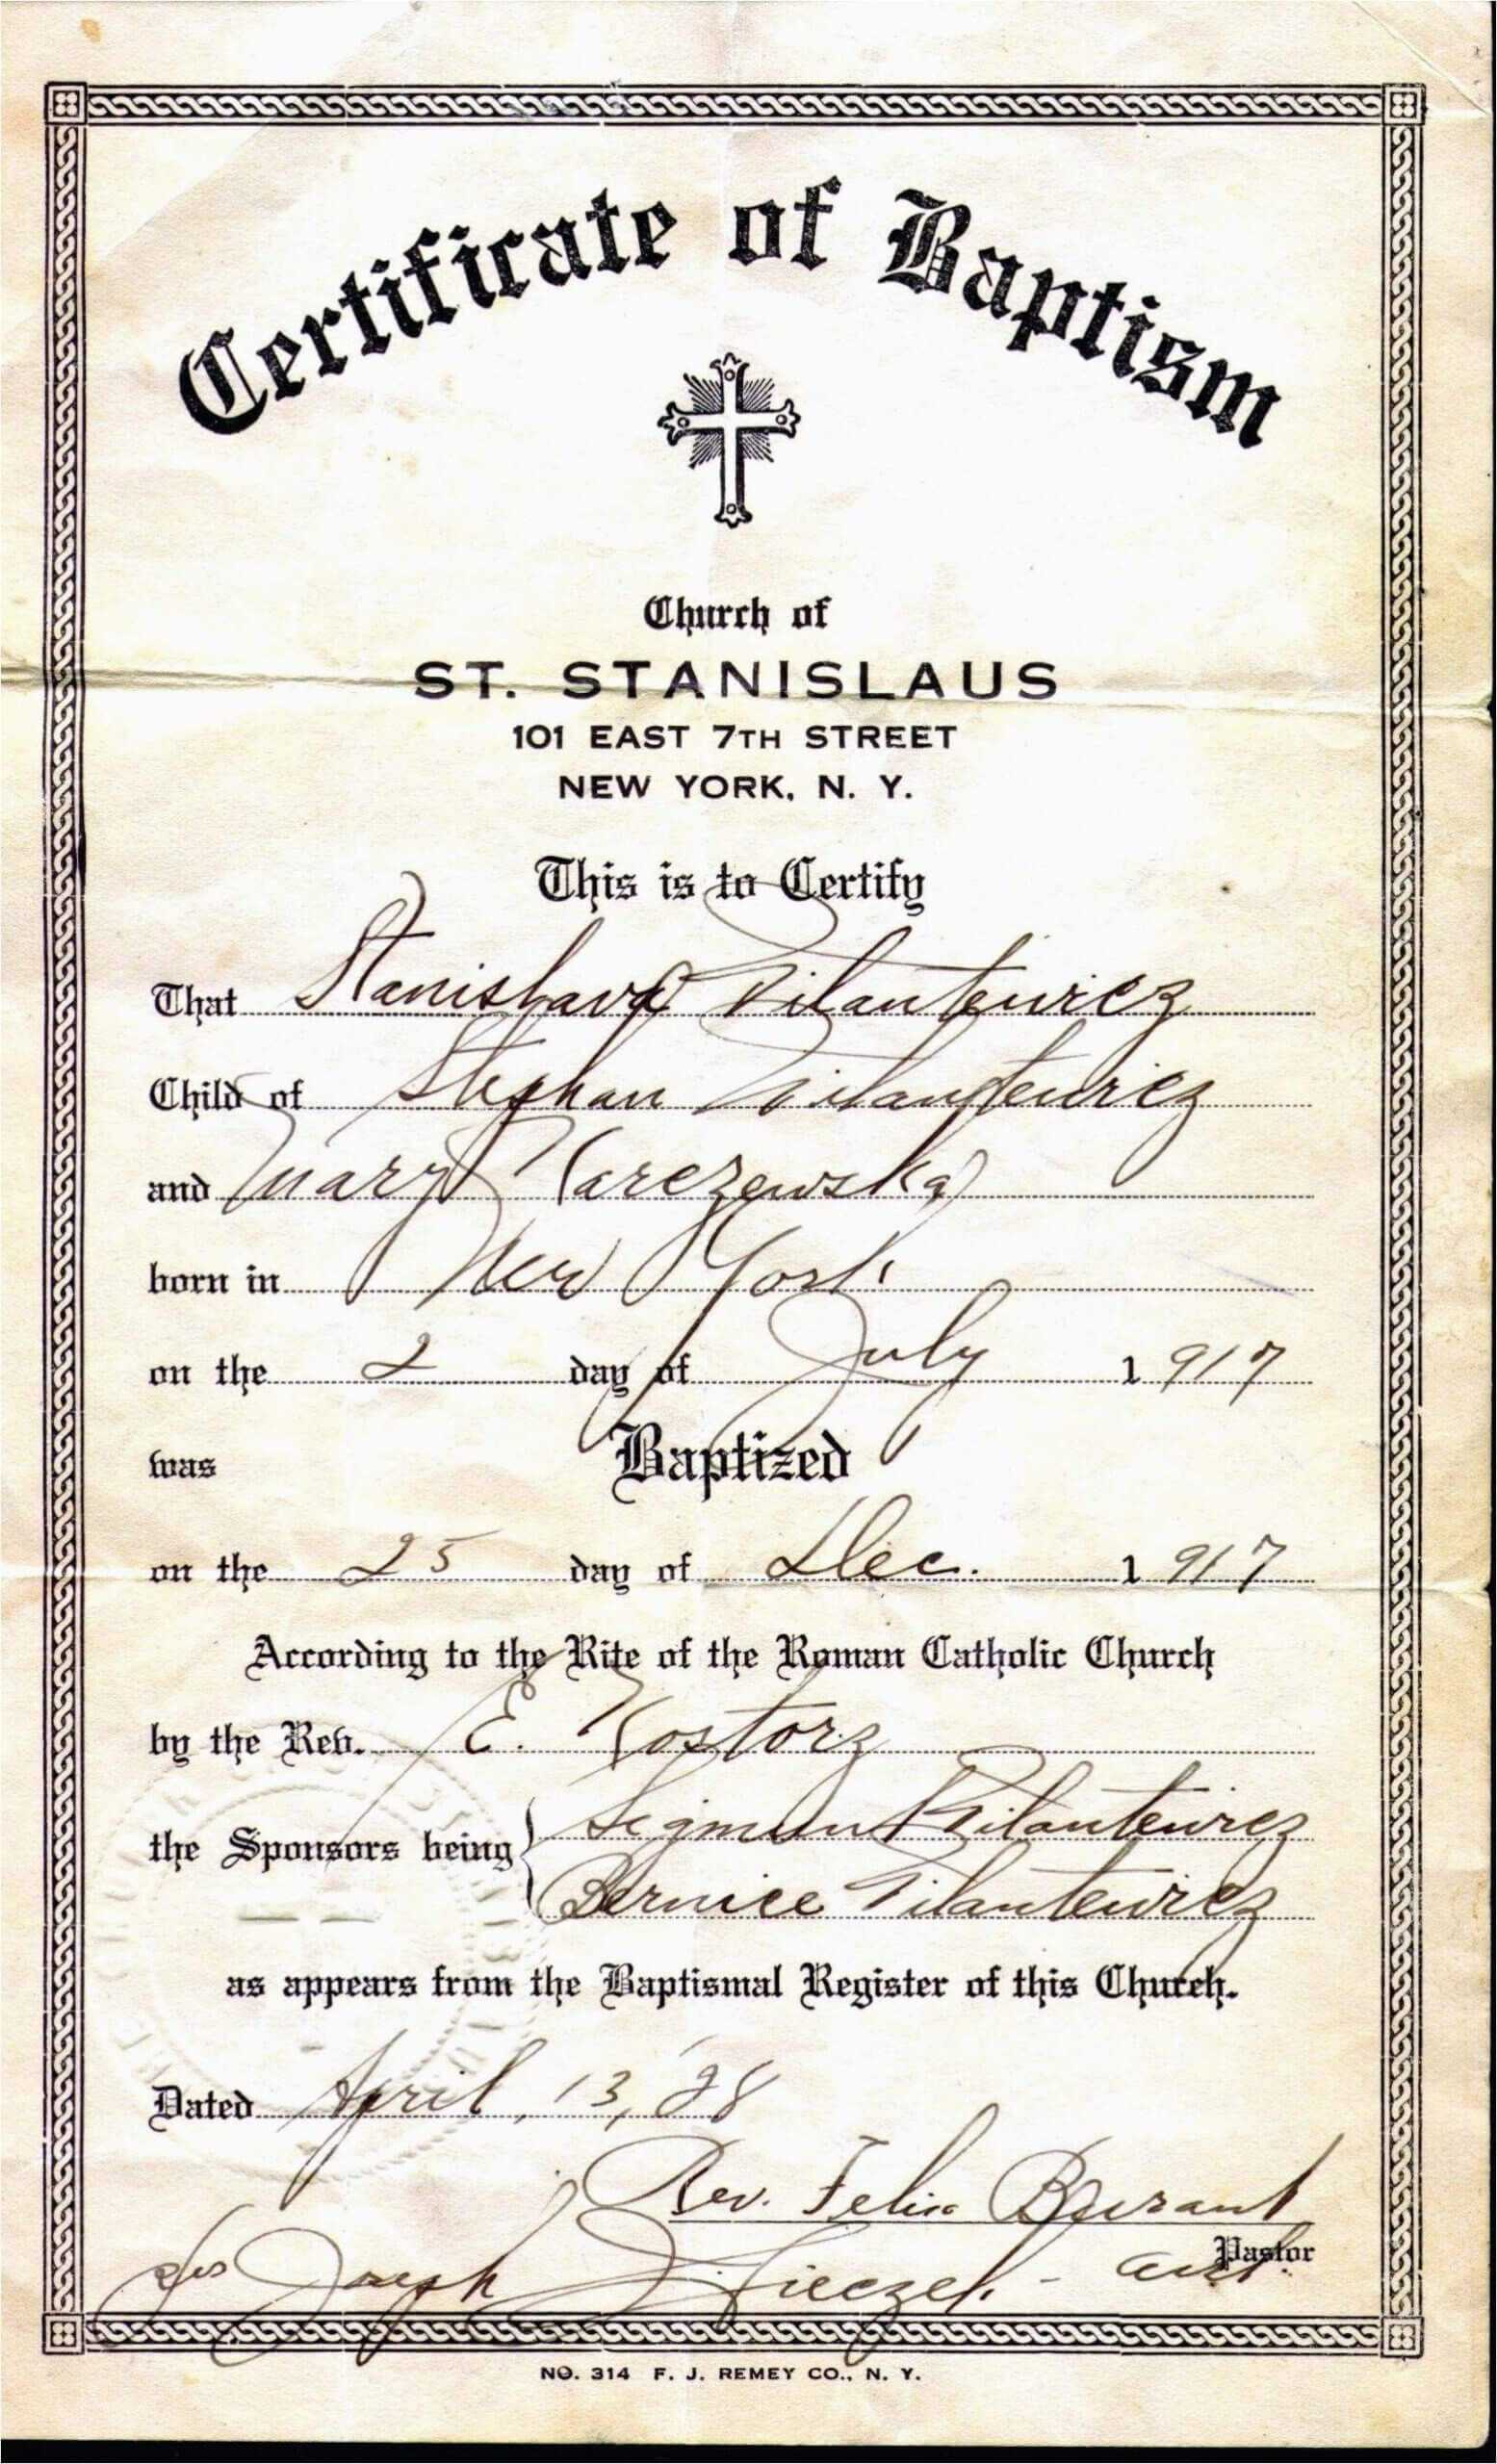 Certificate of Baptism
Church of
ST. STANISLAUS
101 EAST 7TH STREET
NEW YORK, N. Y.
This is to Certify
That Stanislava Pilantewicz
Child of Stephan Pilantewicz
and Mary Karczewska
born in New York
on the 2 day of July 1917
was Baptized
on the 25 day of Dec. 1917
According to the Rite of the Roman Catholic Church
by the Rev. E. Kostorz
the Sponsors being Sigmund Pilantewicz
Bernice Pilantewicz
as appears from the Baptismal Register of this Church.
Dated April, 13, '28
Rev. Felix Burant
Pastor
per Joseph
NO. 314 F. J. REMEY CO., N. Y.